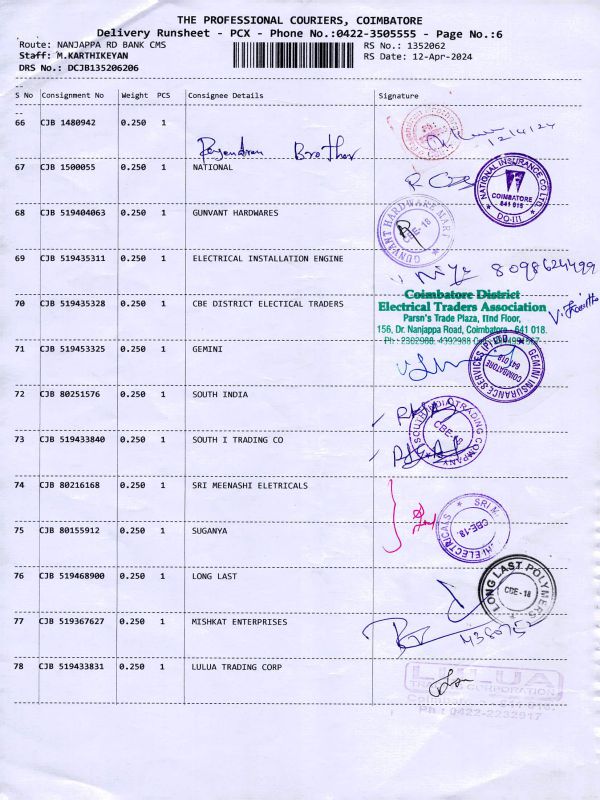 THE PROFESSIONAL COURIERS, COIMBATORE
Delivery Runsheet - PCX - Phone No.:0422-3505555 - Page No.:6
Route: NANJAPPA RD BANK CMS RS No.: 1352062
Staff: M.KARTHIKEYAN RS Date: 12-Apr-2024
DRS No.: DCJB135206206
S No Consignment No Weight PCS Consignee Details Signature
66 CJB 1480942 0.250 1
12/4/24
Rajendran Brother
67 CJB 1500055 0.250 1 NATIONAL
NATIONAL INSURANCE CO LTD. COIMBATORE 641 018 DO-III
68 CJB 519404063 0.250 1 GUNVANT HARDWARES
GUNVANT HARDWARE MART CBE-18
69 CJB 519435311 0.250 1 ELECTRICAL INSTALLATION ENGINE
8098624499
70 CJB 519435328 0.250 1 CBE DISTRICT ELECTICAL TRADERS
Coimbatore District
Electrical Traders Association
Parsn's Trade Plaza, IInd Floor,
156, Dr. Nanjappa Road, Coimbatore - 641 018.
71 CJB 519453325 0.250 1 GEMINI
GEMINI INSURANCE SERVICES (P) LTD COIMBATORE 641 018
72 CJB 80251576 0.250 1 SOUTH INDIA
73 CJB 519433840 0.250 1 SOUTH I TRADING CO
SOUTH INDIA TRADING COMPANY CBE-18
74 CJB 80216168 0.250 1 SRI MEENASHI ELETRICALS
SRI M ELECTRICALS CBE-18.
75 CJB 80155912 0.250 1 SUGANYA
76 CJB 519468900 0.250 1 LONG LAST
LONG LAST POLYMERS CBE-18
77 CJB 519367627 0.250 1 MISHKAT ENTERPRISES
4380752
78 CJB 519433831 0.250 1 LULUA TRADING CORP
LULUA
TRADING CORPORATION
Ph : 0422-2232917